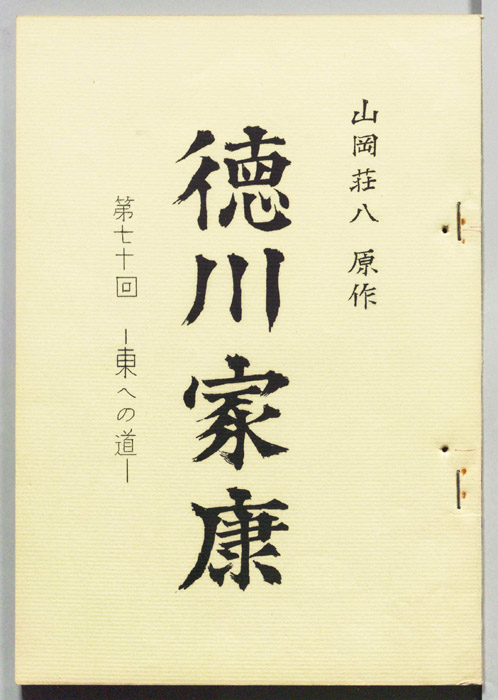 山岡荘八 原作
徳川家康
第七十回 ―東への道―